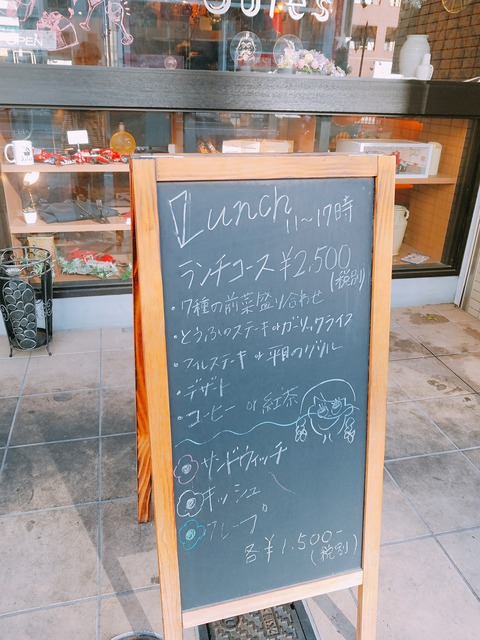 Lunch 11~17時
ランチコース ¥2,500
(税別)
・7種の前菜盛り合わせ
・とうふのステーキ or ガーリックライス
・フィレステーキ or 平目のグリル
・デザート
・コーヒー or 紅茶
サンドウィッチ
キッシュ
クレープ
各¥1.500-
(税別)